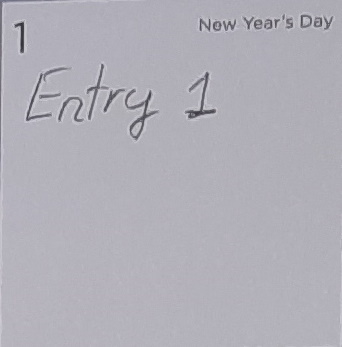 1
New Year's Day
Entry 1